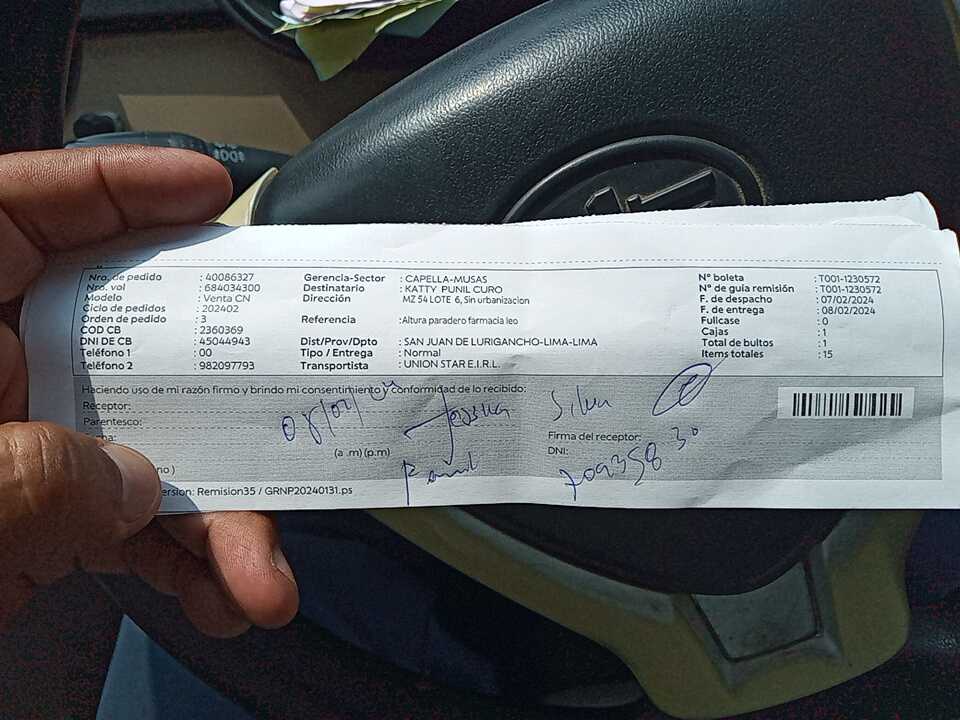 Nro. de pedido : 40086327
Nro. vol : 684034300
Modelo : Venta CN
Ciclo de pedidos : 202402
Orden de pedido : 3
COD CB : 2360369
DNI DE CB : 45044943
Teléfono 1 : 00
Teléfono 2 : 982097793
Gerencia-Sector : CAPELLA-MUSAS
Destinatario : KATTY PUNIL CURO
Dirección MZ 54 LOTE 6, Sin urbanizacion
Referencia : Altura paradero farmacia leo
Dist/Prov/Dpto : SAN JUAN DE LURIGANCHO-LIMA-LIMA
Tipo / Entrega : Normal
Transportista : UNION STAR E.I.R.L.
N° boleta : T001-1230572
N° de guia remisión : T001-1230572
F. de despacho : 07/02/2024
F. de entrega : 08/02/2024
Fullcase : 0
Cajas : 1
Total de bultos : 1
Items totales : 15
Haciendo uso de mi razón firmo y brindo mi consentimiento y conformidad de lo recibido:
Receptor:
Parentesco:
(a .m) (p.m)
Silva
Firma del receptor:
DNI:
ersion: Remision35 / GRNP20240131.ps